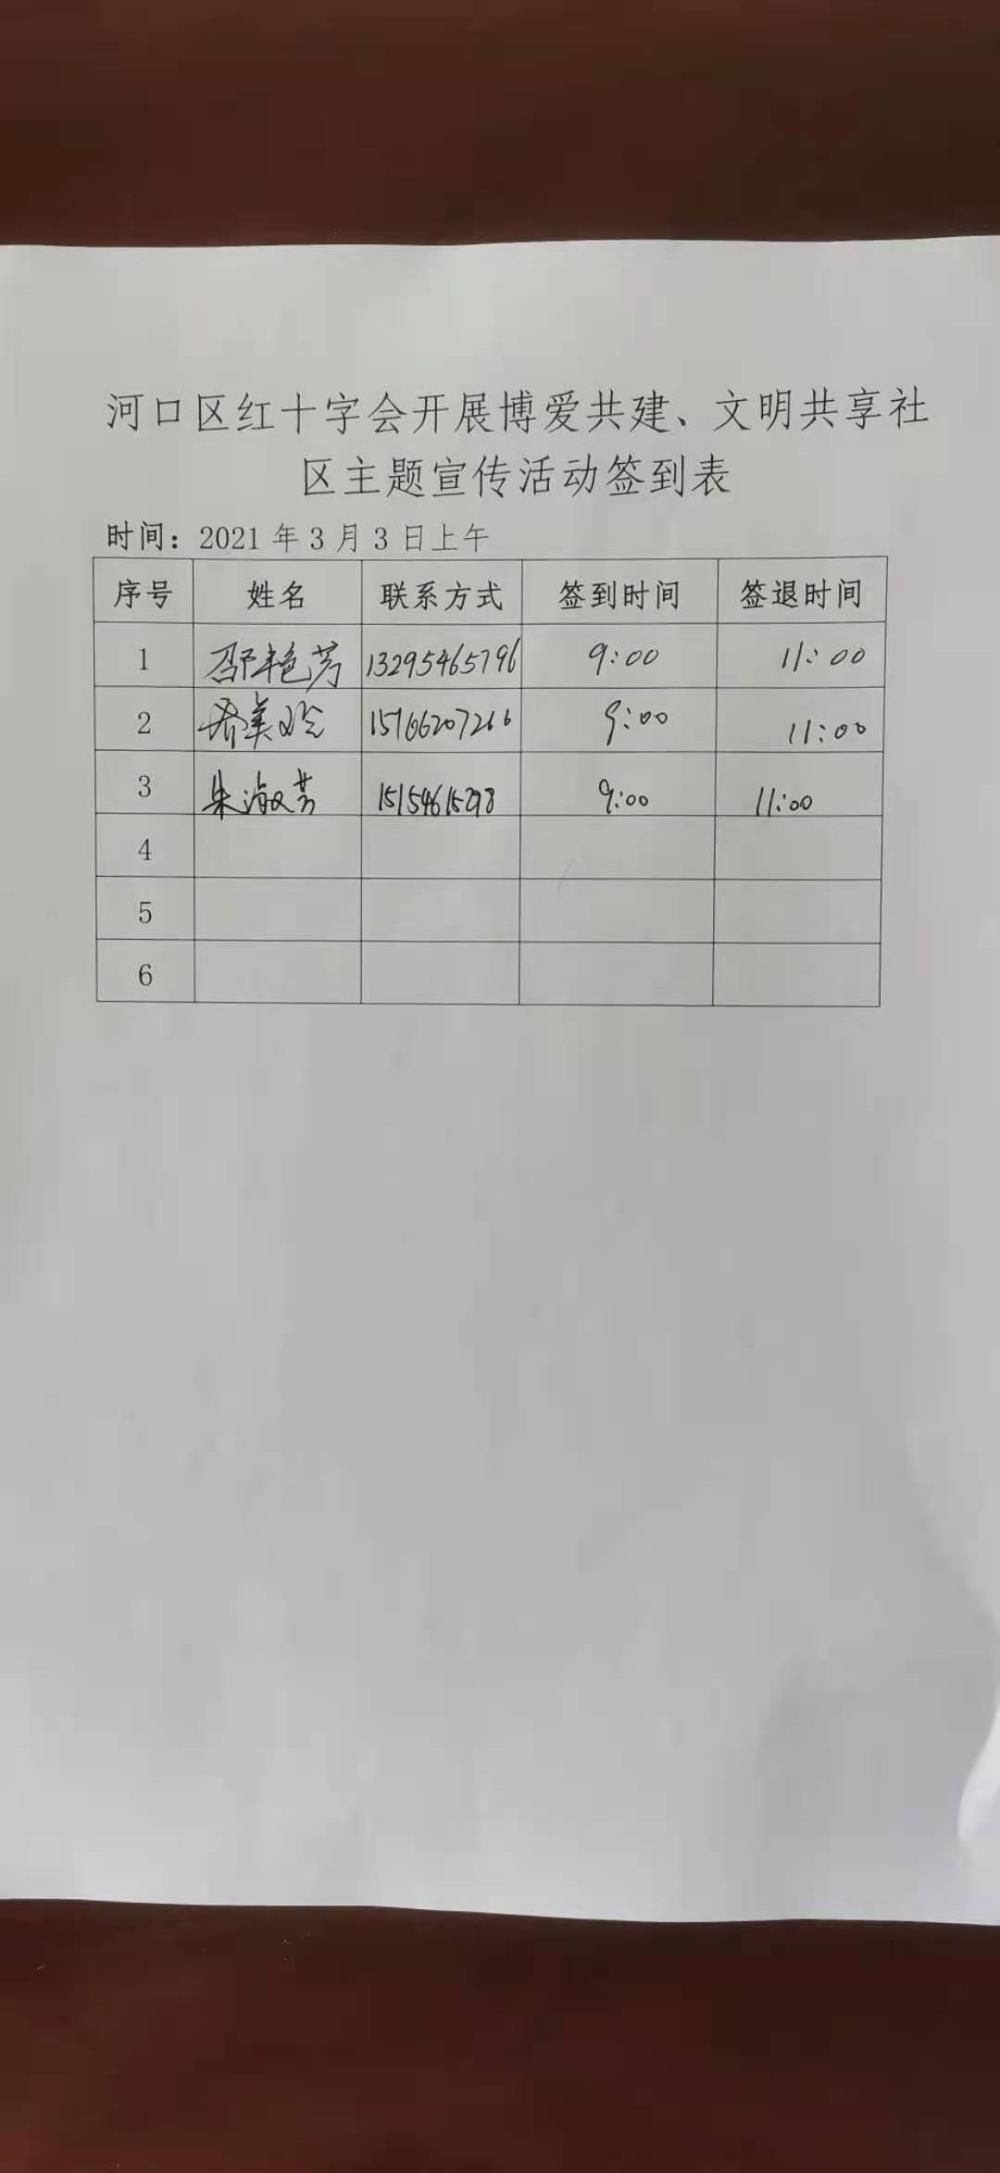 河口区红十字会开展博爱共建、文明共享社
区主题宣传活动签到表
时间：2021 年 3 月 3 日上午
序号 姓名 联系方式 签到时间 签退时间
1 邵艳芳 13295465796 9:00 11:00
2 乔美玲 9:00 11:00
3 朱淑芳 15154615298 9:00 11:00
4
5
6